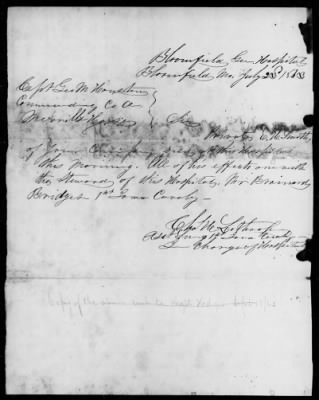 Bloomfield Gen Hospital
Bloomfield Mo. July 23d 1863
Capt Geo M Houston
Commanding Co A
Merrill's Horse
Sir
of your Company died at this Hospital
this morning. All of his effects are with
the Steward of this Hospital, Mr Brainard
Bridges 1st Iowa Cavalry
Chas H Lothrop
Asst Surg 1st Iowa Cavalry
In Charge of Hospital